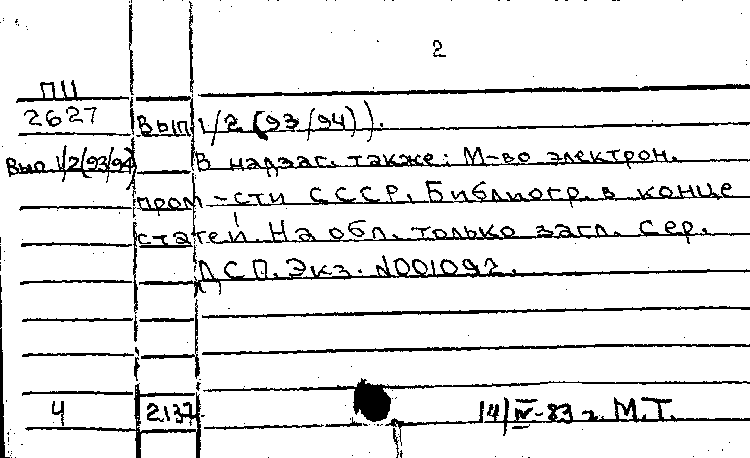 2
ПЦ
2627 Вып 1/2 (93/94)).
Вып 1/2(93/94) В надзаг. также: М-во электрон.
пром-сти СССР. Библиогр. в конце
статей. На обл. только загл. сер.
ДСП. Экз. N001092.
4 2137 14/IV-83 г. М.Т.